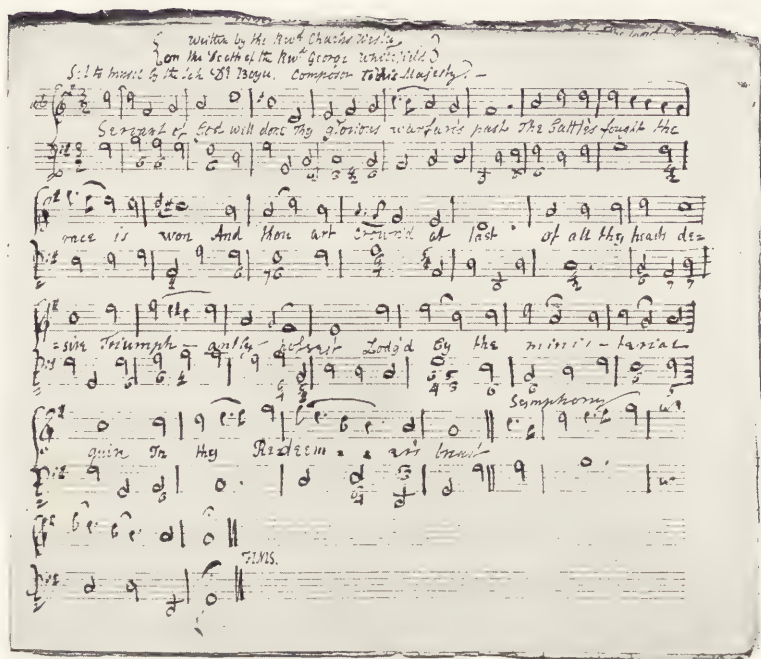 Written by the Revd Charles Wesley
on the Death of the Revd George Whitefield
Set to music by the late Dr Boyce. Composer to his Majesty. —
Servant of God well done Thy glorious warfare's past The Battle's fought the
race is won And thou art crown'd at last of all thy hearts de=
=sire Triumph - antly possest Lodg'd By the minis - terial
Symphony
quire In thy Redeem = = er's breast
FINIS.